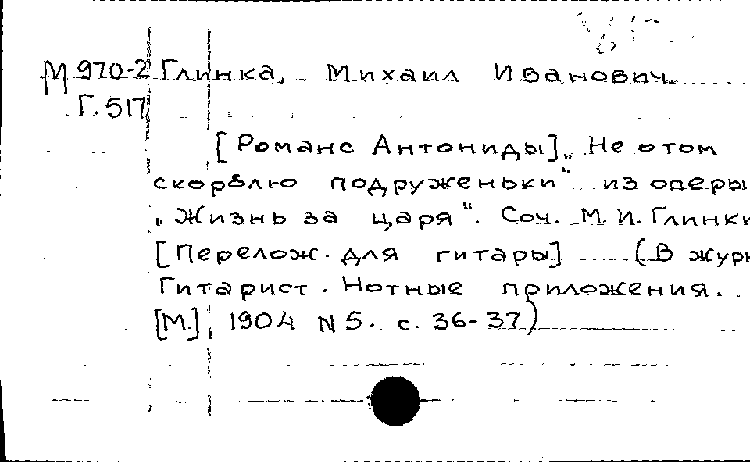 М 970-2 Глинка, Михаил Иванович.
Г. 517
[Романс Антониды] „Не отом
скорблю подруженьки" из оперы
„Жизнь за царя". Соч. М.И. Глинки
[Перелож. для гитары] (В журн
Гитарист. Нотные приложения.
[М.], 1904 N 5. с. 36-37)